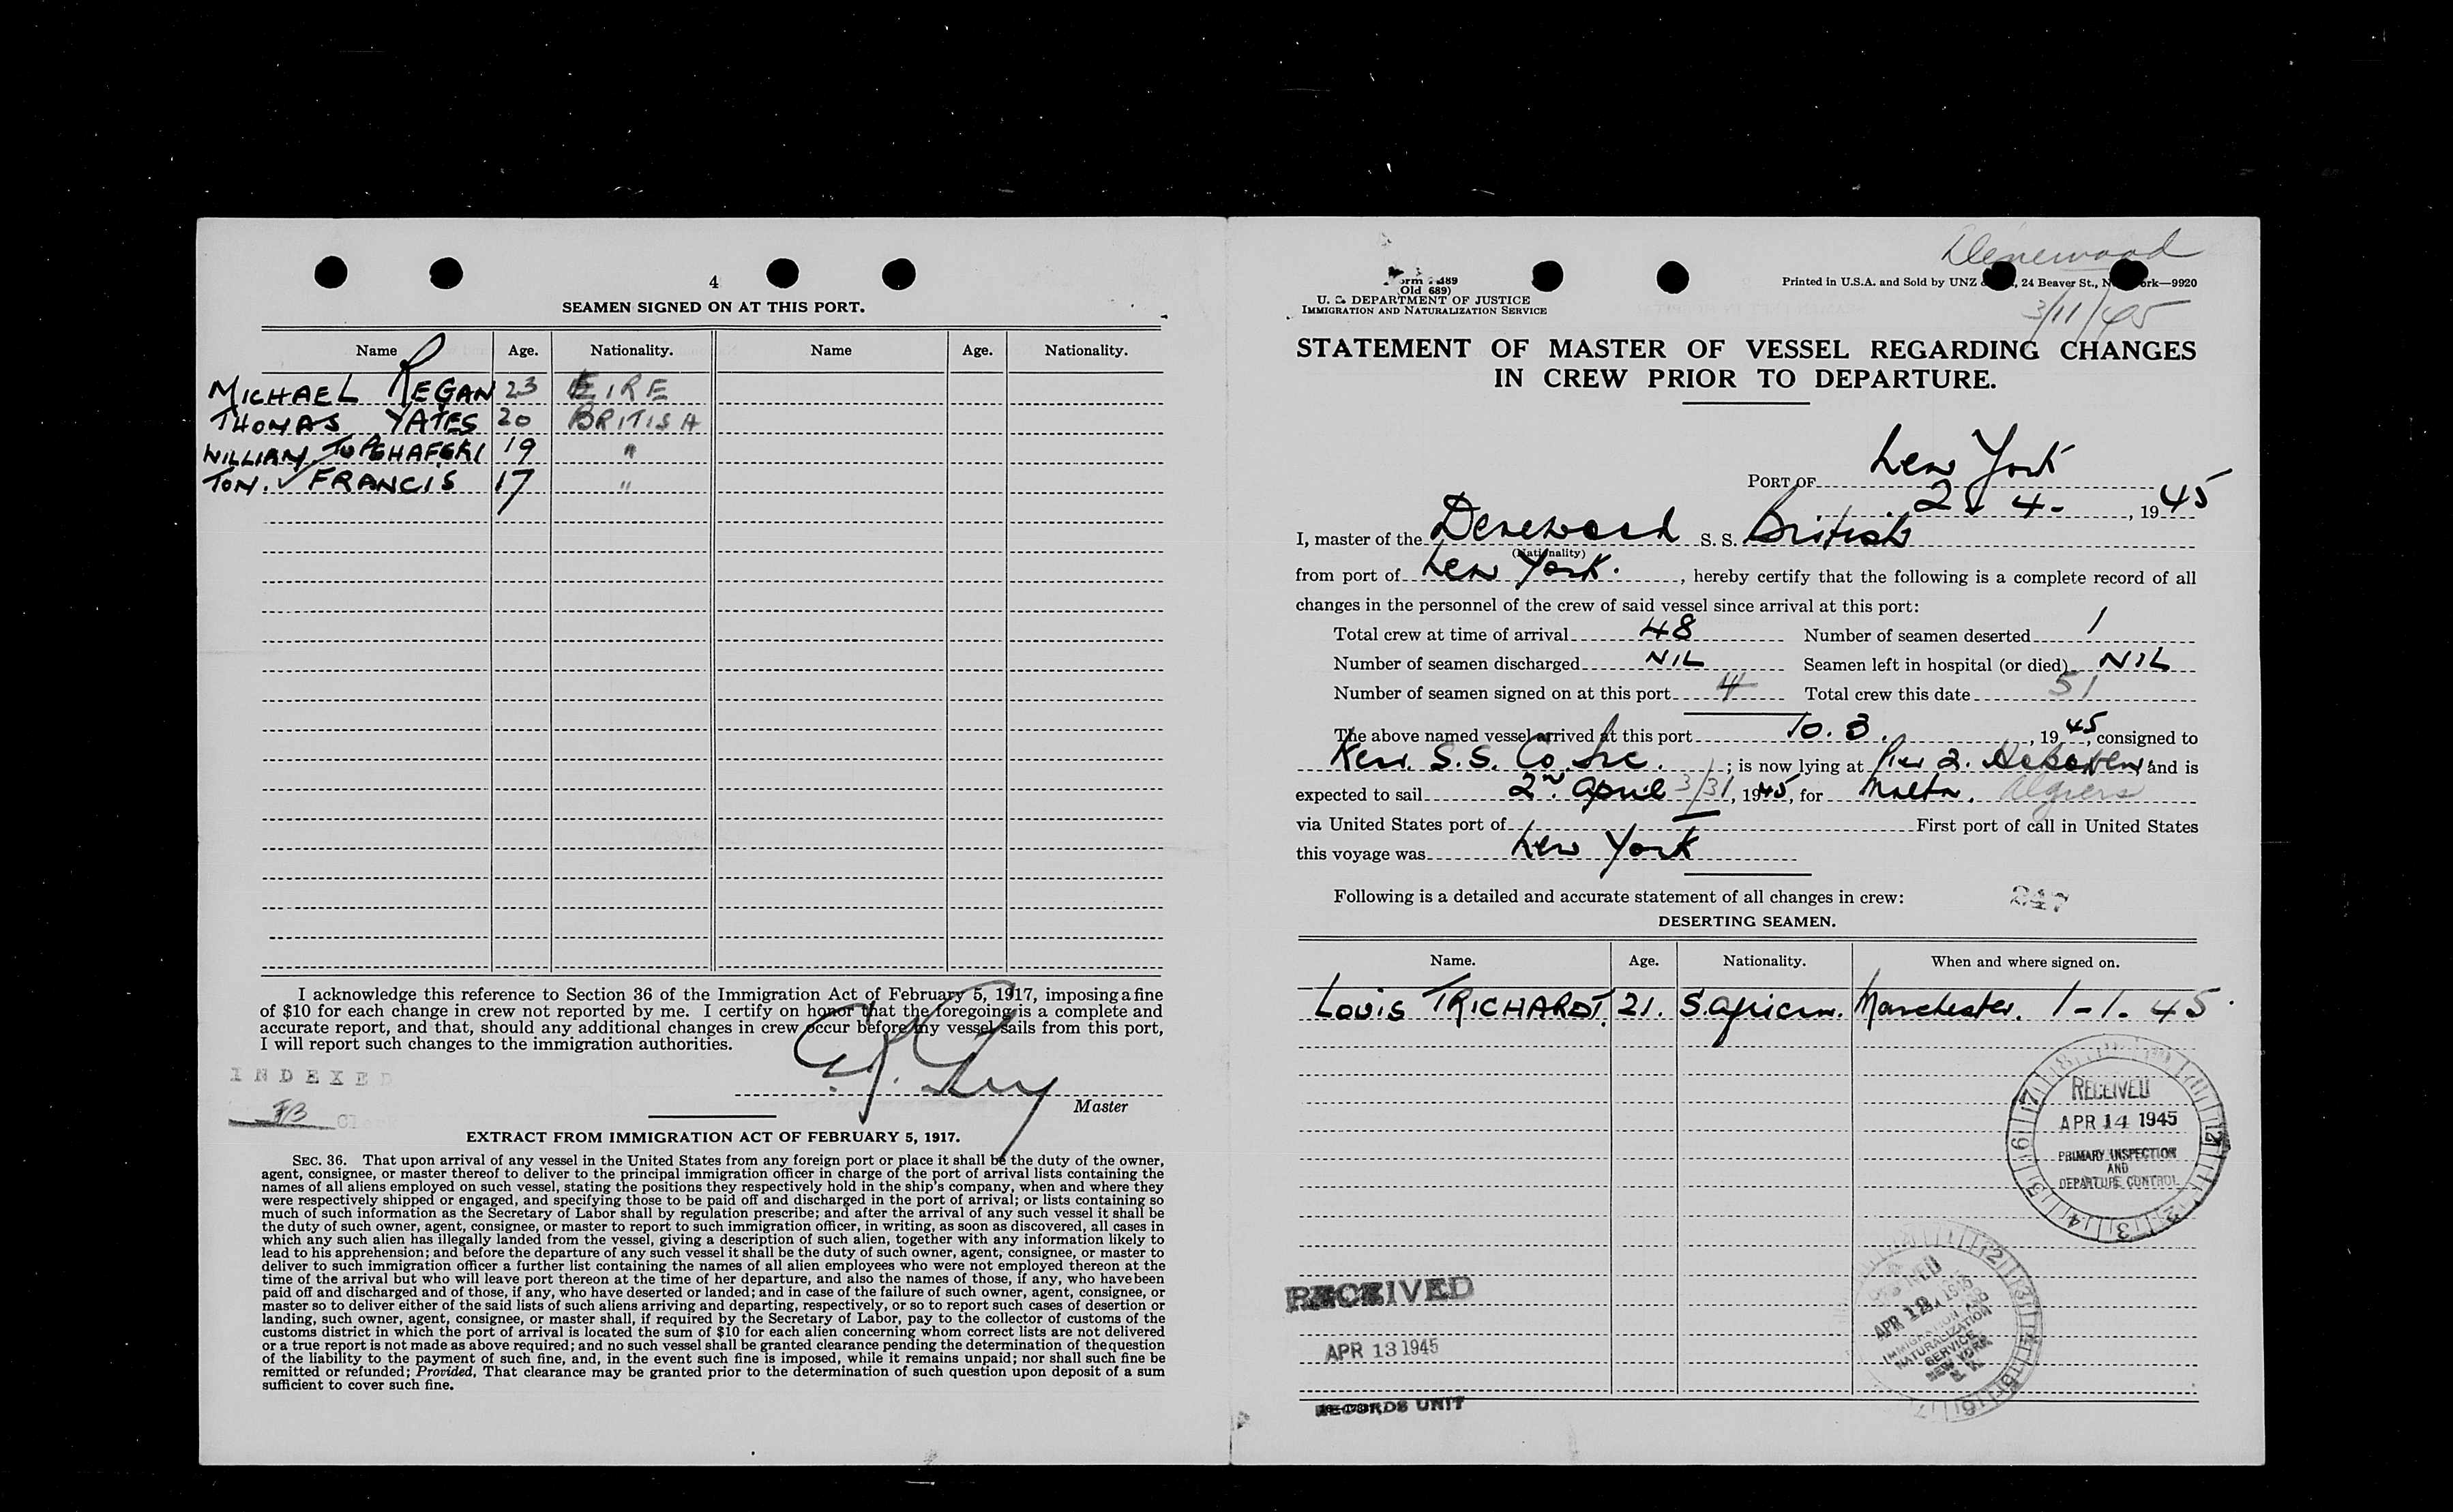 4
SEAMEN SIGNED ON AT THIS PORT.
Name Age. Nationality. Name Age. Nationality.
MICHAEL REGAN 23 EIRE
THOMAS YATES 20 BRITISH
WILLIAM 19 "
TOM. FRANCIS 17 "
I acknowledge this reference to Section 36 of the Immigration Act of February 5, 1917, imposing a fine
of $10 for each change in crew not reported by me. I certify on honor that the foregoing is a complete and
accurate report, and that, should any additional changes in crew occur before my vessel sails from this port,
I will report such changes to the immigration authorities.
INDEXED
Master
EXTRACT FROM IMMIGRATION ACT OF FEBRUARY 5, 1917.
SEC. 36. That upon arrival of any vessel in the United States from any foreign port or place it shall be the duty of the owner,
agent, consignee, or master thereof to deliver to the principal immigration officer in charge of the port of arrival lists containing the
names of all aliens employed on such vessel, stating the positions they respectively hold in the ship's company, when and where they
were respectively shipped or engaged, and specifying those to be paid off and discharged in the port of arrival; or lists containing so
much of such information as the Secretary of Labor shall by regulation prescribe; and after the arrival of any such vessel it shall be
the duty of such owner, agent, consignee, or master to report to such immigration officer, in writing, as soon as discovered, all cases in
which any such alien has illegally landed from the vessel, giving a description of such alien, together with any information likely to
lead to his apprehension; and before the departure of any such vessel it shall be the duty of such owner, agent, consignee, or master to
deliver to such immigration officer a further list containing the names of all alien employees who were not employed thereon at the
time of the arrival but who will leave port thereon at the time of her departure, and also the names of those, if any, who have been
paid off and discharged and of those, if any, who have deserted or landed; and in case of the failure of such owner, agent, consignee, or
master so to deliver either of the said lists of such aliens arriving and departing, respectively, or so to report such cases of desertion or
landing, such owner, agent, consignee, or master shall, if required by the Secretary of Labor, pay to the collector of customs of the
customs district in which the port of arrival is located the sum of $10 for each alien concerning whom correct lists are not delivered
or a true report is not made as above required; and no such vessel shall be granted clearance pending the determination of the question
of the liability to the payment of such fine, and, in the event such fine is imposed, while it remains unpaid; nor shall such fine be
remitted or refunded; Provided, That clearance may be granted prior to the determination of such question upon deposit of a sum
sufficient to cover such fine.
Denewood
3/11/45
489
(Old 689)
U. S. DEPARTMENT OF JUSTICE
IMMIGRATION AND NATURALIZATION SERVICE
Printed in U.S.A. and Sold by UNZ 24 Beaver St., 9920
STATEMENT OF MASTER OF VESSEL REGARDING CHANGES
IN CREW PRIOR TO DEPARTURE.
PORT OF New York
2 - 4 - , 1945
I, master of the Denewood S. S. British
(Nationality)
from port of New York. , hereby certify that the following is a complete record of all
changes in the personnel of the crew of said vessel since arrival at this port:
Total crew at time of arrival 48 Number of seamen deserted 1
Number of seamen discharged NIL Seamen left in hospital (or died) NIL
Number of seamen signed on at this port 4 Total crew this date 51
The above named vessel arrived at this port 10. 3. , 1945, consigned to
Kerr. S.S. Co. Inc. ; is now lying at Pier 2. and is
expected to sail 2nd. April 3/31, 1945, for Malta. Algiers
via United States port of First port of call in United States
this voyage was New York
Following is a detailed and accurate statement of all changes in crew:
247
DESERTING SEAMEN.
Name. Age. Nationality. When and where signed on.
LOUIS TRICHARDT. 21. S. African. Manchester. 1-1. 45.
RECEIVED
APR 14 1945
PRIMARY INSPECTION
AND
DEPARTURE CONTROL
APR 12 1945
IMMIGRATION AND
NATURALIZATION
SERVICE
NEW YORK
RECEIVED
APR 13 1945
RECORDS UNIT